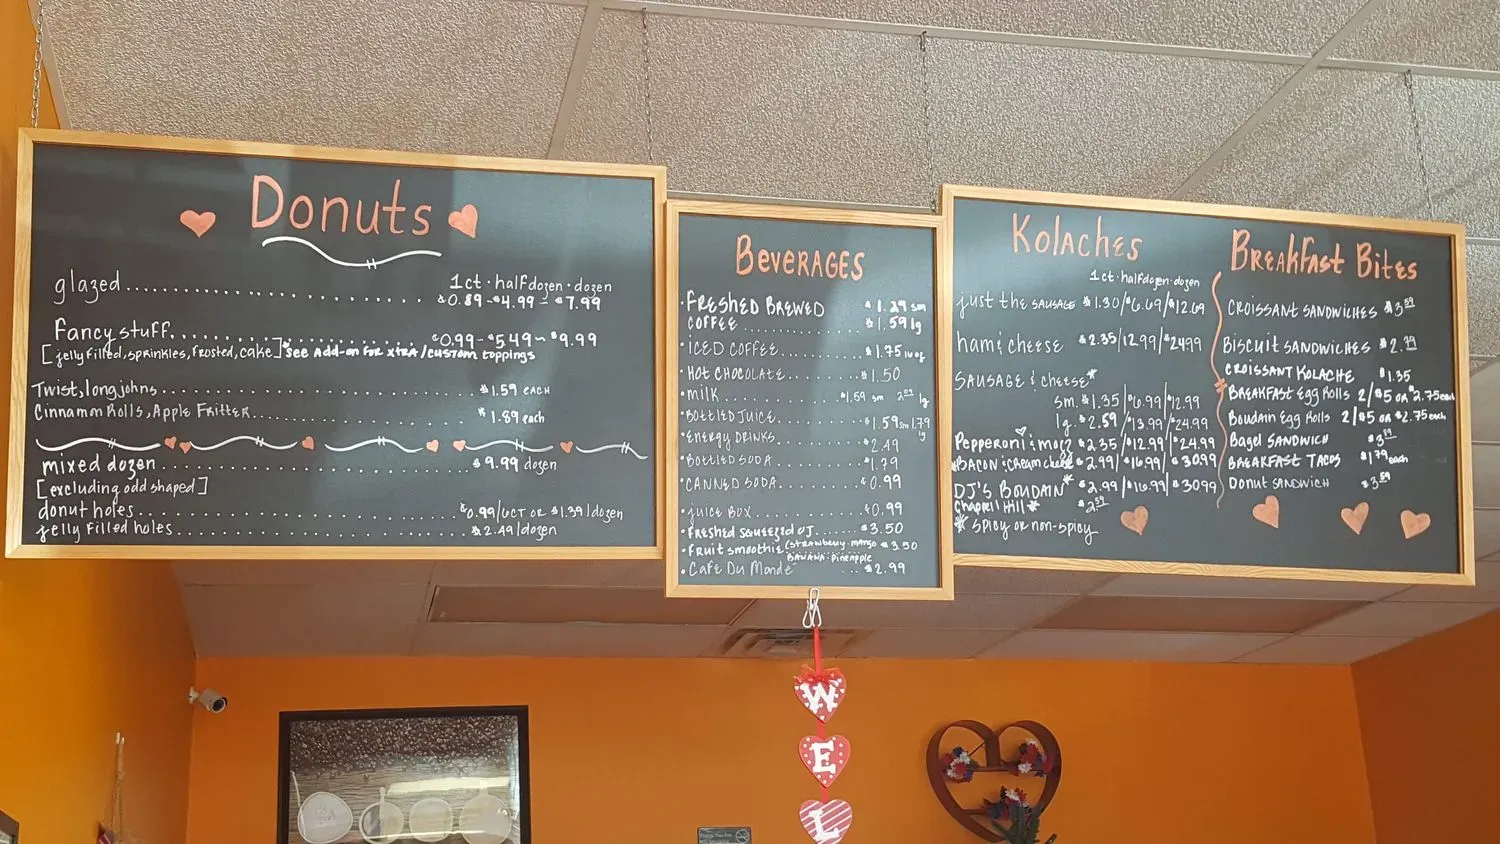 Donuts
1ct · half dozen · dozen
glazed $0.89 - $4.99 - $7.99
Fancy stuff $0.99 - $5.49 ~ $9.99
[jelly filled, sprinkles, frosted, cake] *see add-on for xtra/custom toppings
Twist, longjohns $1.59 each
Cinnamm Rolls, Apple Fritter $1.89 each
mixed dozen $9.99 dozen
[excluding odd shaped]
donut holes $0.99/6ct or $1.39/dozen
jelly filled holes $2.49/dozen
Beverages
· Freshed Brewed $1.29 sm
Coffee $1.59 lg
· Iced Coffee $1.75 16oz
· Hot Chocolate $1.50
· milk $1.59 sm lg
· Bottled Juice $1.59 sm 1.79 lg
· Energy Drinks $2.49
· Bottled Soda $1.79
· Canned Soda $0.99
· Juice Box $0.99
· Freshed Squeezed OJ $3.50
· Fruit smoothie (strawberry · mango $3.50
banana · pineapple
· Cafe Du Monde $2.99
Kolaches
1ct · half dozen · dozen
just the sausage $1.30/$6.69/$12.69
ham & cheese $2.35/12.99/$24.99
Sausage & cheese*
sm. $1.35/$6.99/$12.99
lg. $2.59/$13.99/$24.99
Pepperoni & mozz $2.35/$12.99/$24.99
*Bacon & cream cheese $2.99/$16.99/$30.99
DJ's Boudain* $2.99/$16.99/$30.99
Chapell Hill* $2.59
* spicy or non-spicy
Breakfast Bites
Croissant Sandwiches $3.59
Biscuit Sandwiches
Croissant Kolache $1.35
Breakfast Egg Rolls 2/$5 or $2.75 each
Boudain Egg Rolls 2/$5 or $2.75 each
Bagel Sandwich
Breakfast Tacos $1.79 each
Donut Sandwich $3.59
W
E
L